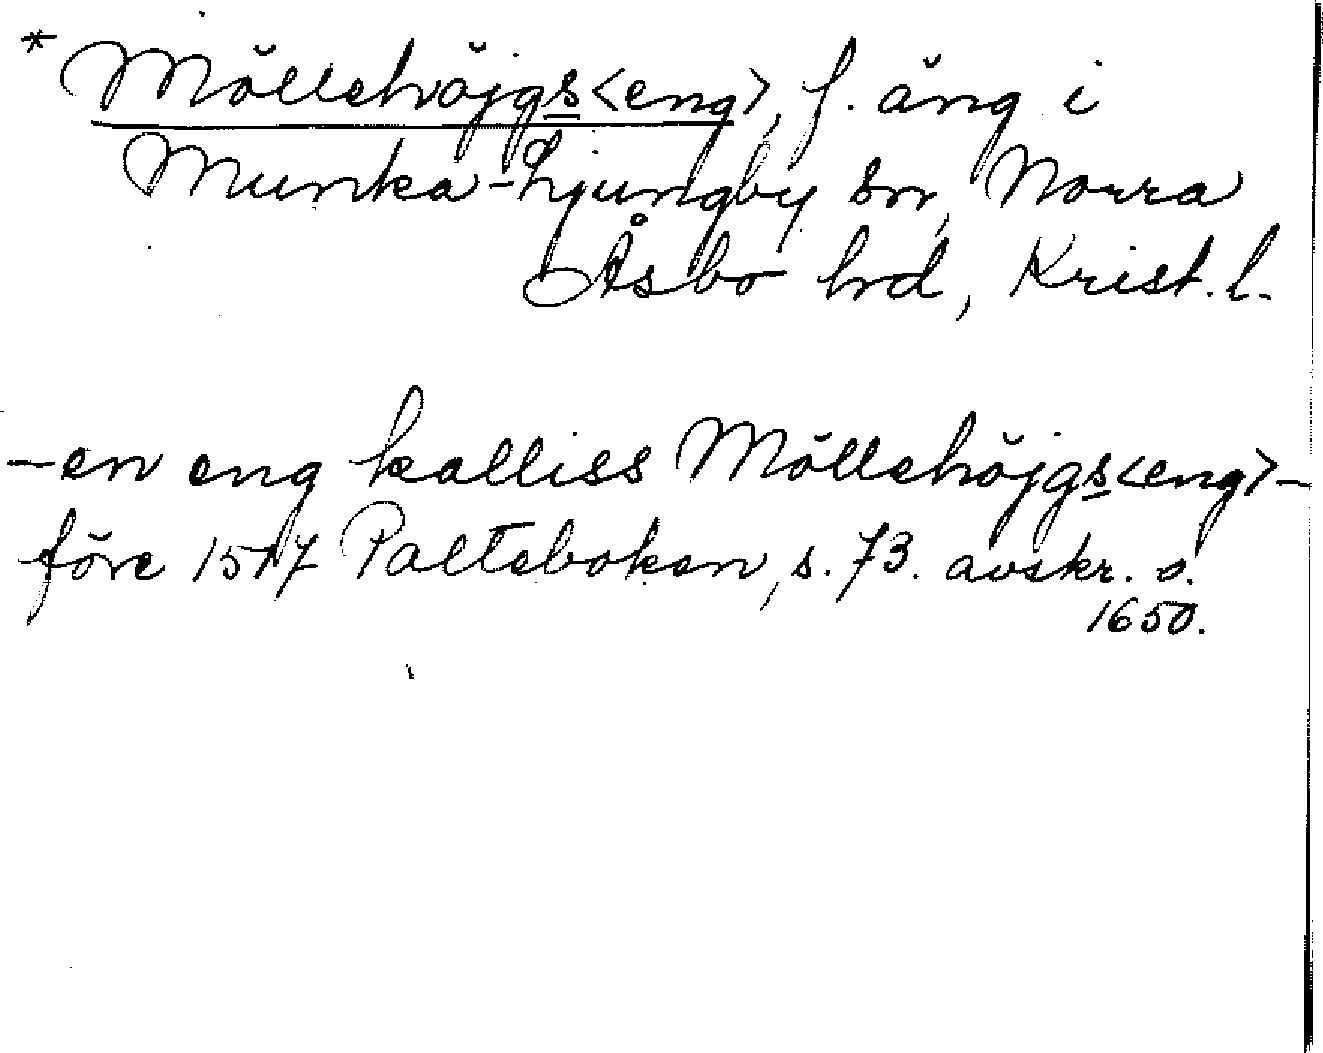 * Möllehöjgs<eng>, f. äng i
Munka-Ljungby sn, Norra
Åsbo hd, Krist. l.
-en eng kalliss Möllehöjgs<eng>-
före 1517 Palteboken, s. 73. avskr. o.
1650.